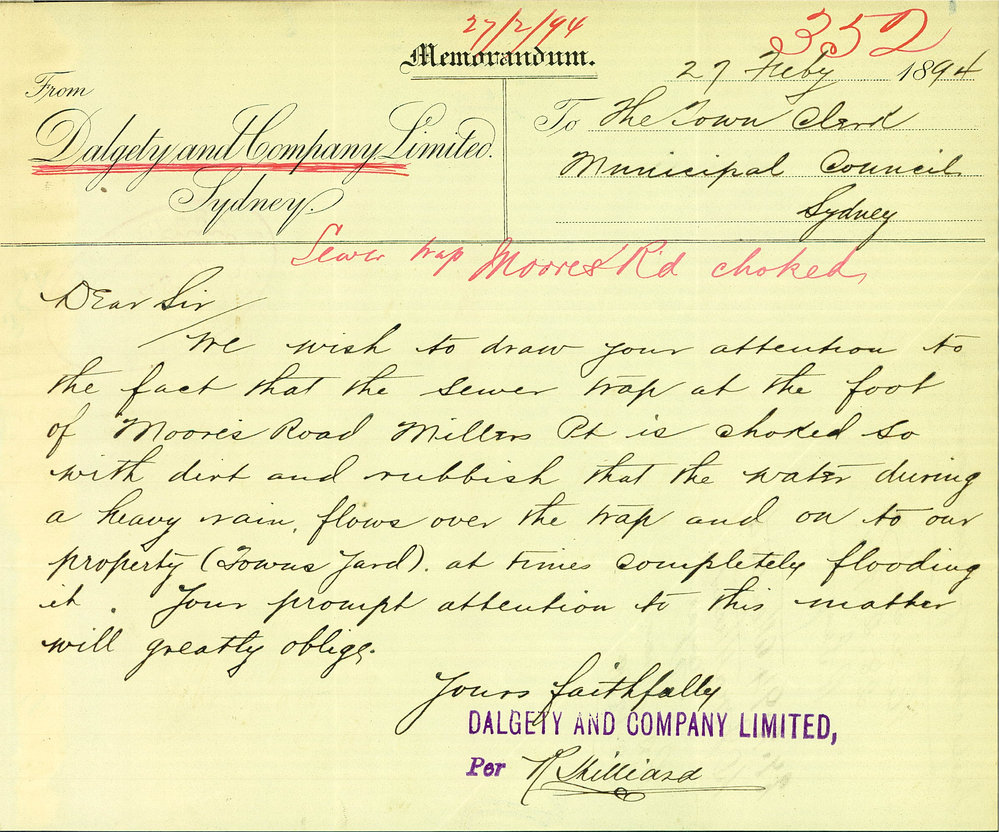 27/2/94
352
Memorandum.
27 Feby 1894
From
Dalgety and Company Limited.
Sydney.
To The Town Clerk
Municipal Council
Sydney
Sewer trap Moores R'd choked
Dear Sir
We wish to draw your attention to
the fact that the sewer trap at the foot
of Moore's Road Millers Pt is choked so
with dirt and rubbish that the water during
a heavy rain, flows over the trap and on to our
property (Towns Yard). at times completely flooding
it. Your prompt attention to this matter
will greatly oblige.
Yours faithfully
DALGETY AND COMPANY LIMITED,
Per